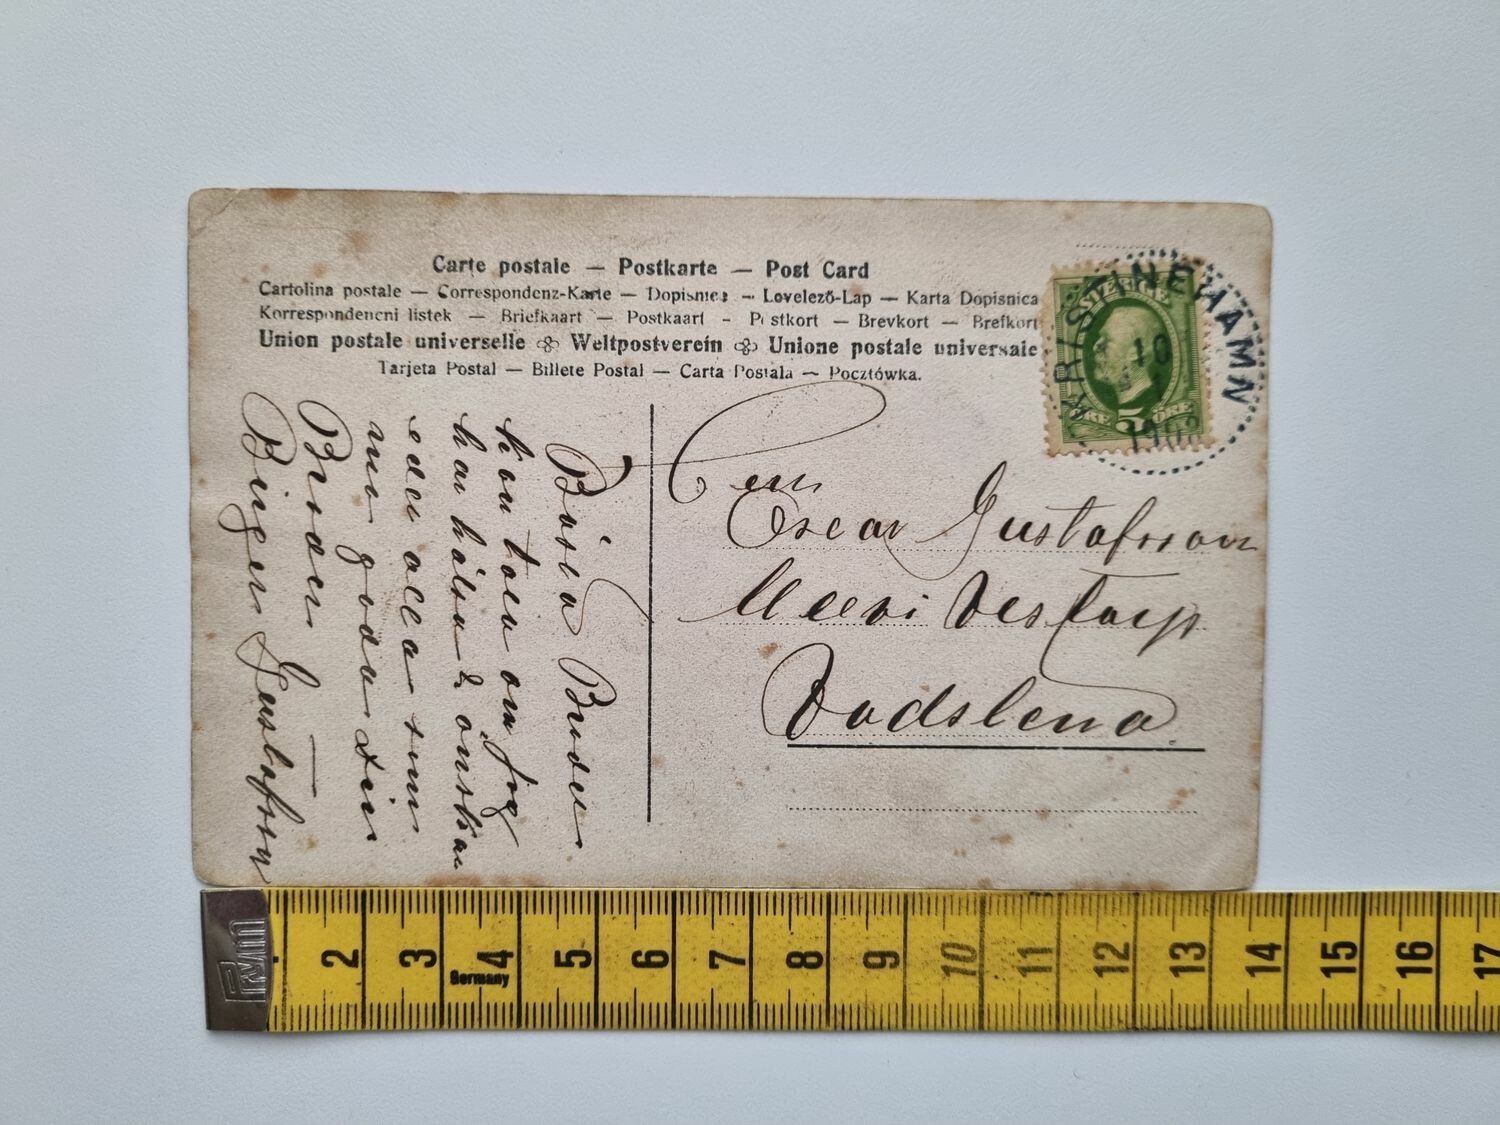 Carte postale — Postkarte — Post Card
Cartolina postale — Correspondenz-Karte — Dopisnice — Lovelező-Lap — Karta Dopisnica
Korrespondencni listek — Briefkaart — Postkaart — Postkort — Brevkort — Brefkort
Union postale universelle Weltpostverein Unione postale universale
Tarjeta Postal — Billete Postal — Carta Postala — Pocztówka.
KRISTINEHAMN
10
1908
SVERIGE
ÖRE 5 ÖRE
Bästa Broder
kan tala om jag
har hälsan & önskar
eder alla sam
ma goda din
Broder
Birger Gustafson
Herr
Oscar Gustafsson
Vestorp
Vadstena
2 3 4 5 6 7 8 9 10 11 12 13 14 15 16 17
Germany